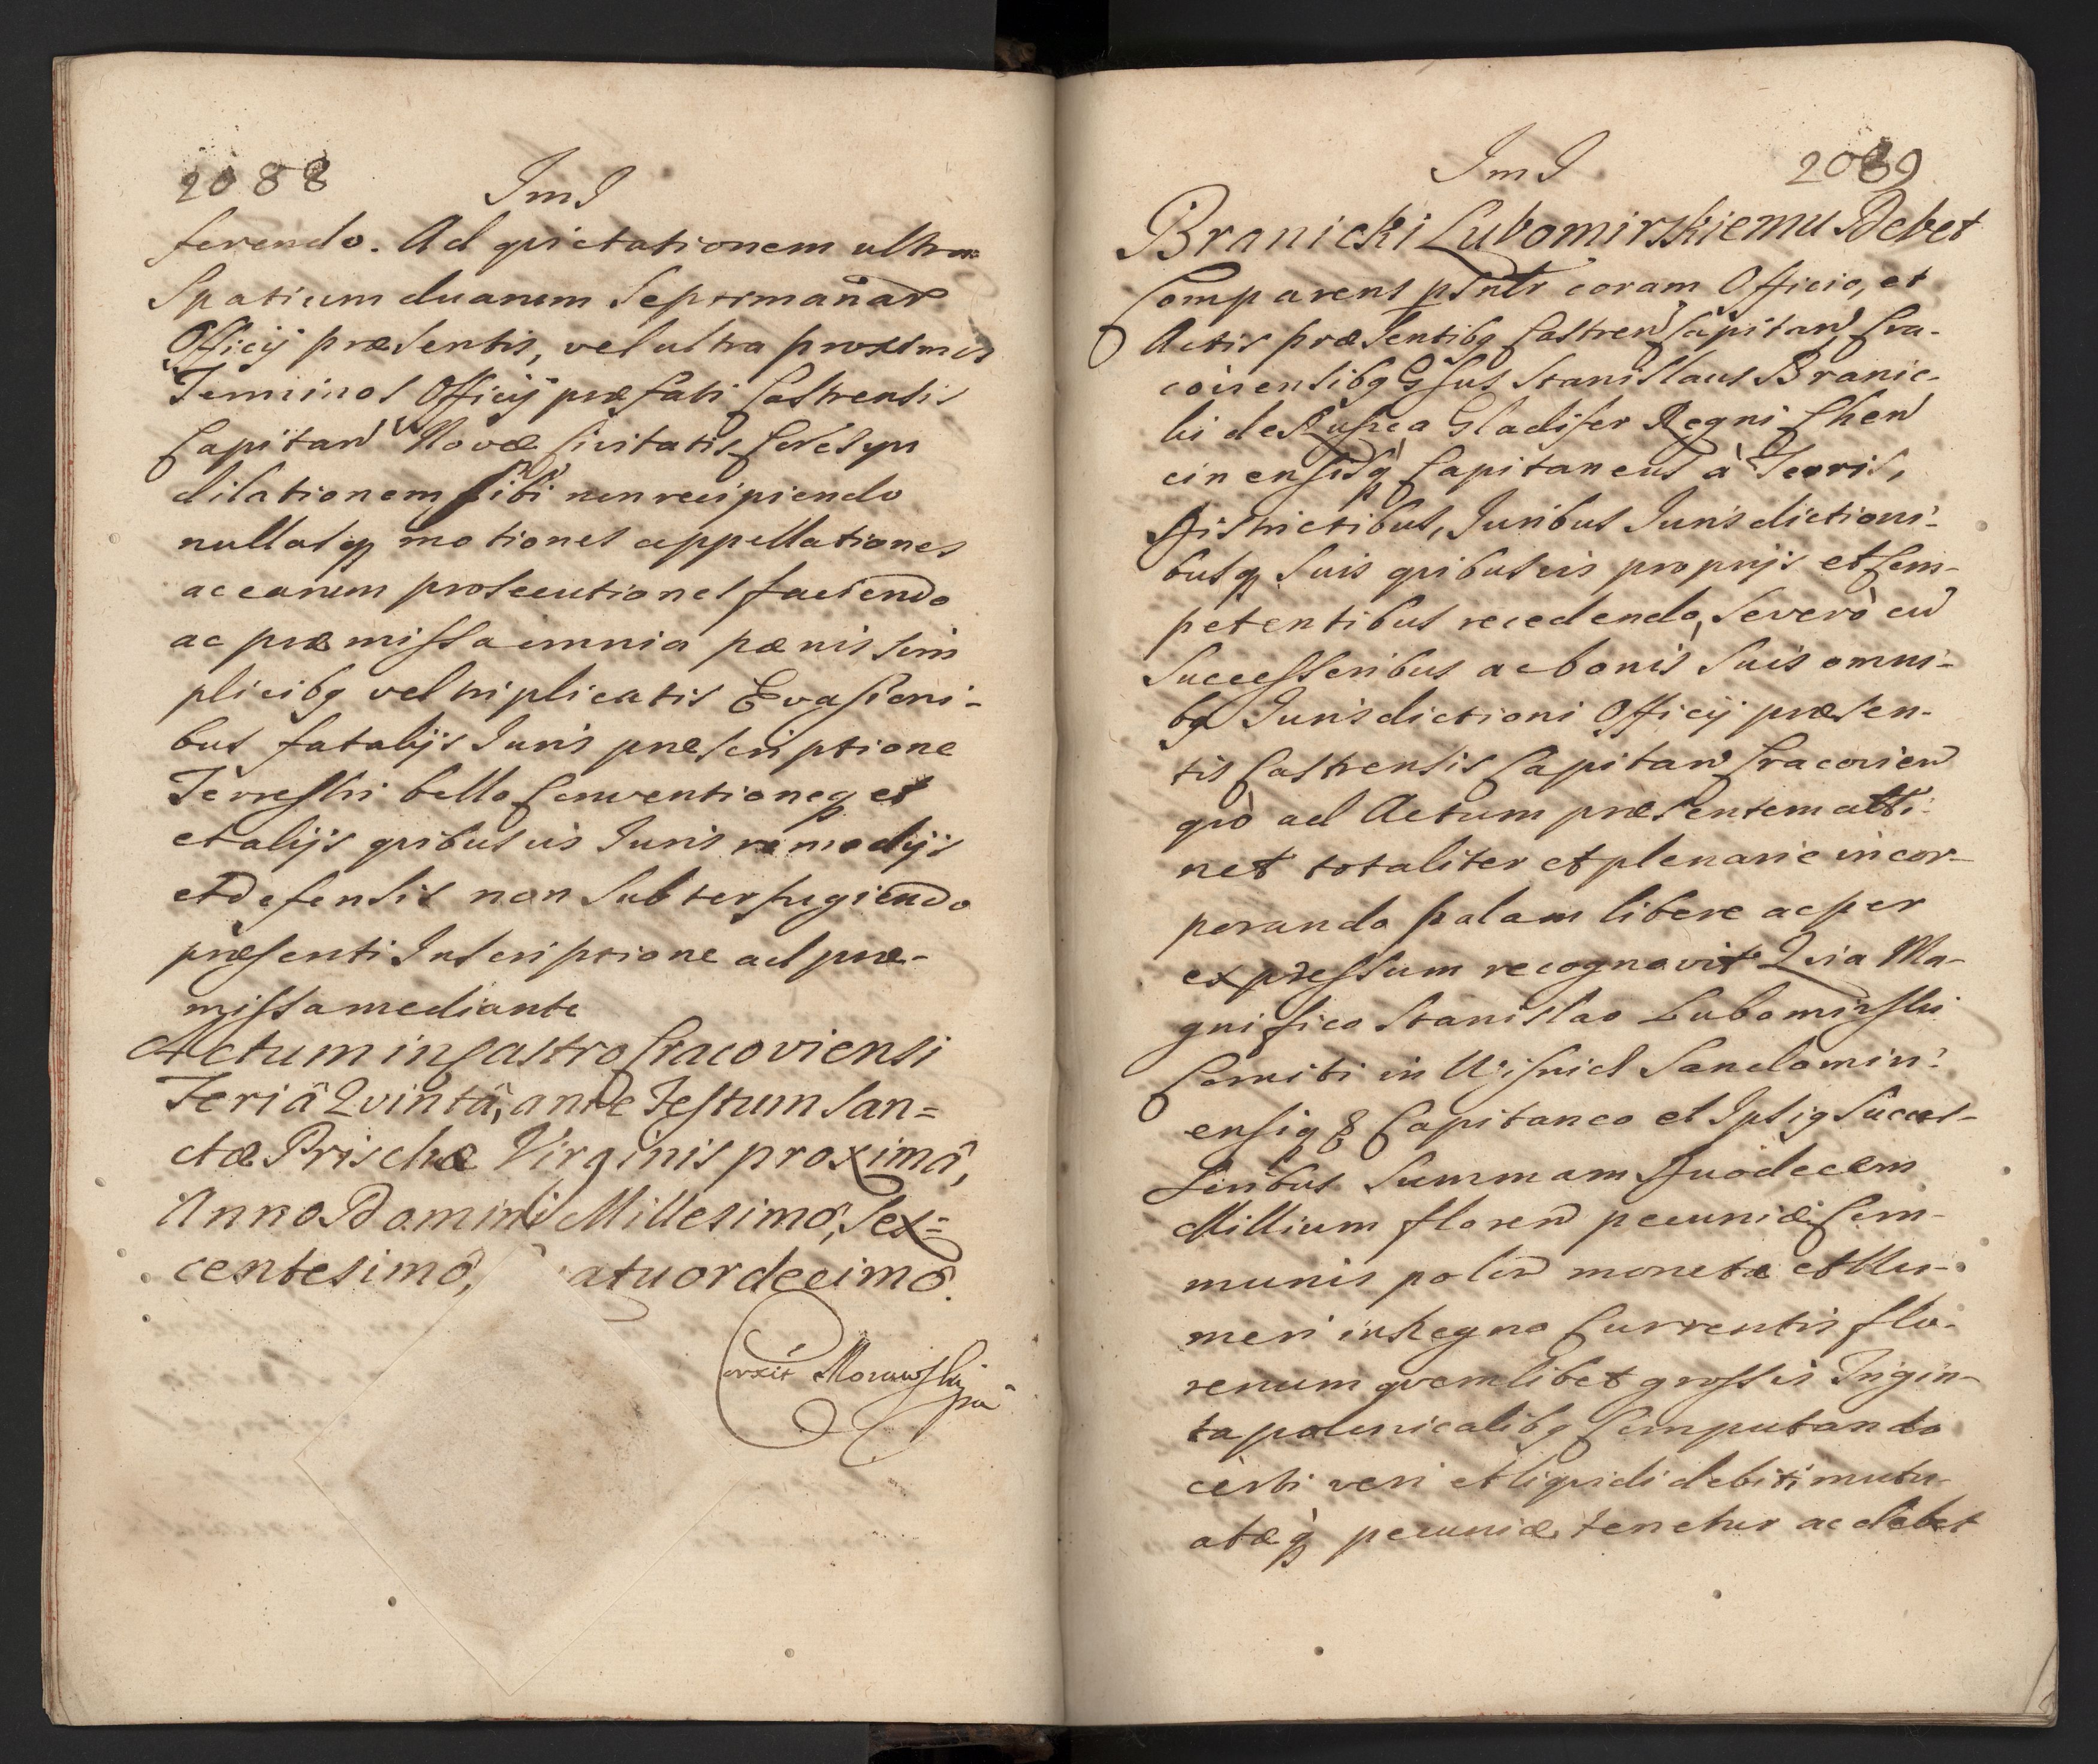 2088
ImJ
ferendo. Ad qvietationem ultra
Spatium duarum Septimanar
Officij præsentis, vel ultra proximos
Terminos Officij præfati Castrensis
Capitan Novæ Civitatis Corczyn
dilationem sibi non recipiendo
nullasq motiones appellationes
ac earum prosecutiones faciendo
ac præmissa omnia pænis sim
plicibq vel triplicatis Evasioni-
bus fatalijs Juris præscriptione
Terrestri bello Conventioneq et
et alijs qvibusvis Juris remedijs
et defensis non subterfugiendo
præsenti Inscriptione ad præ-
missa mediante
Actum in Castro Cracoviensi
Feriâ Qvintâ, ante Festum San=
ctæ Prischæ Virginis proximâ,
Anno Domini Millesimô, Sex=
centesimô, atuordecimô.
Corexit Morawski
mpa
ImJ
2089
Branicki Lubomirskiemu Debet
Comparens psntr coram Officio, et
Actis præsentibq Castren Capitan Cra-
coviensibq Gsus Stanislaus Branic-
ki de Ruszcza Gladifer Regni Chen
cinensisq Capitaneus à Terris,
Districtibus, Juribus Jurisdictioni-
busq suis qvibusvis proprijs et Com-
petentibus recedendo, Se verò cu
Successoribus ac bonis suis omni-
bq Jurisdictioni Officij præsen-
tis Castrensis Capitan Cracovien
qvò ad Actum præsentem atti-
net totaliter et plenarie incor-
porando palam libere ac per
expressum recognovit Qvia Ma-
gnifico Stanislao Lubomirski
Comiti in Wisnicz Sandomiri-
ensiq & Capitaneo et Ipsiq Succes-
soribus Summam Duodecem
Millium floren pecuniæ Com-
munis polon monetæ et Nu-
meri in Regno Currentis flo-
renum qvemlibet grossis Trigin-
ta polonicalibq Computando
certi veri et liqvidi debiti mutu-
atæq pecuniæ tenetur ac debet